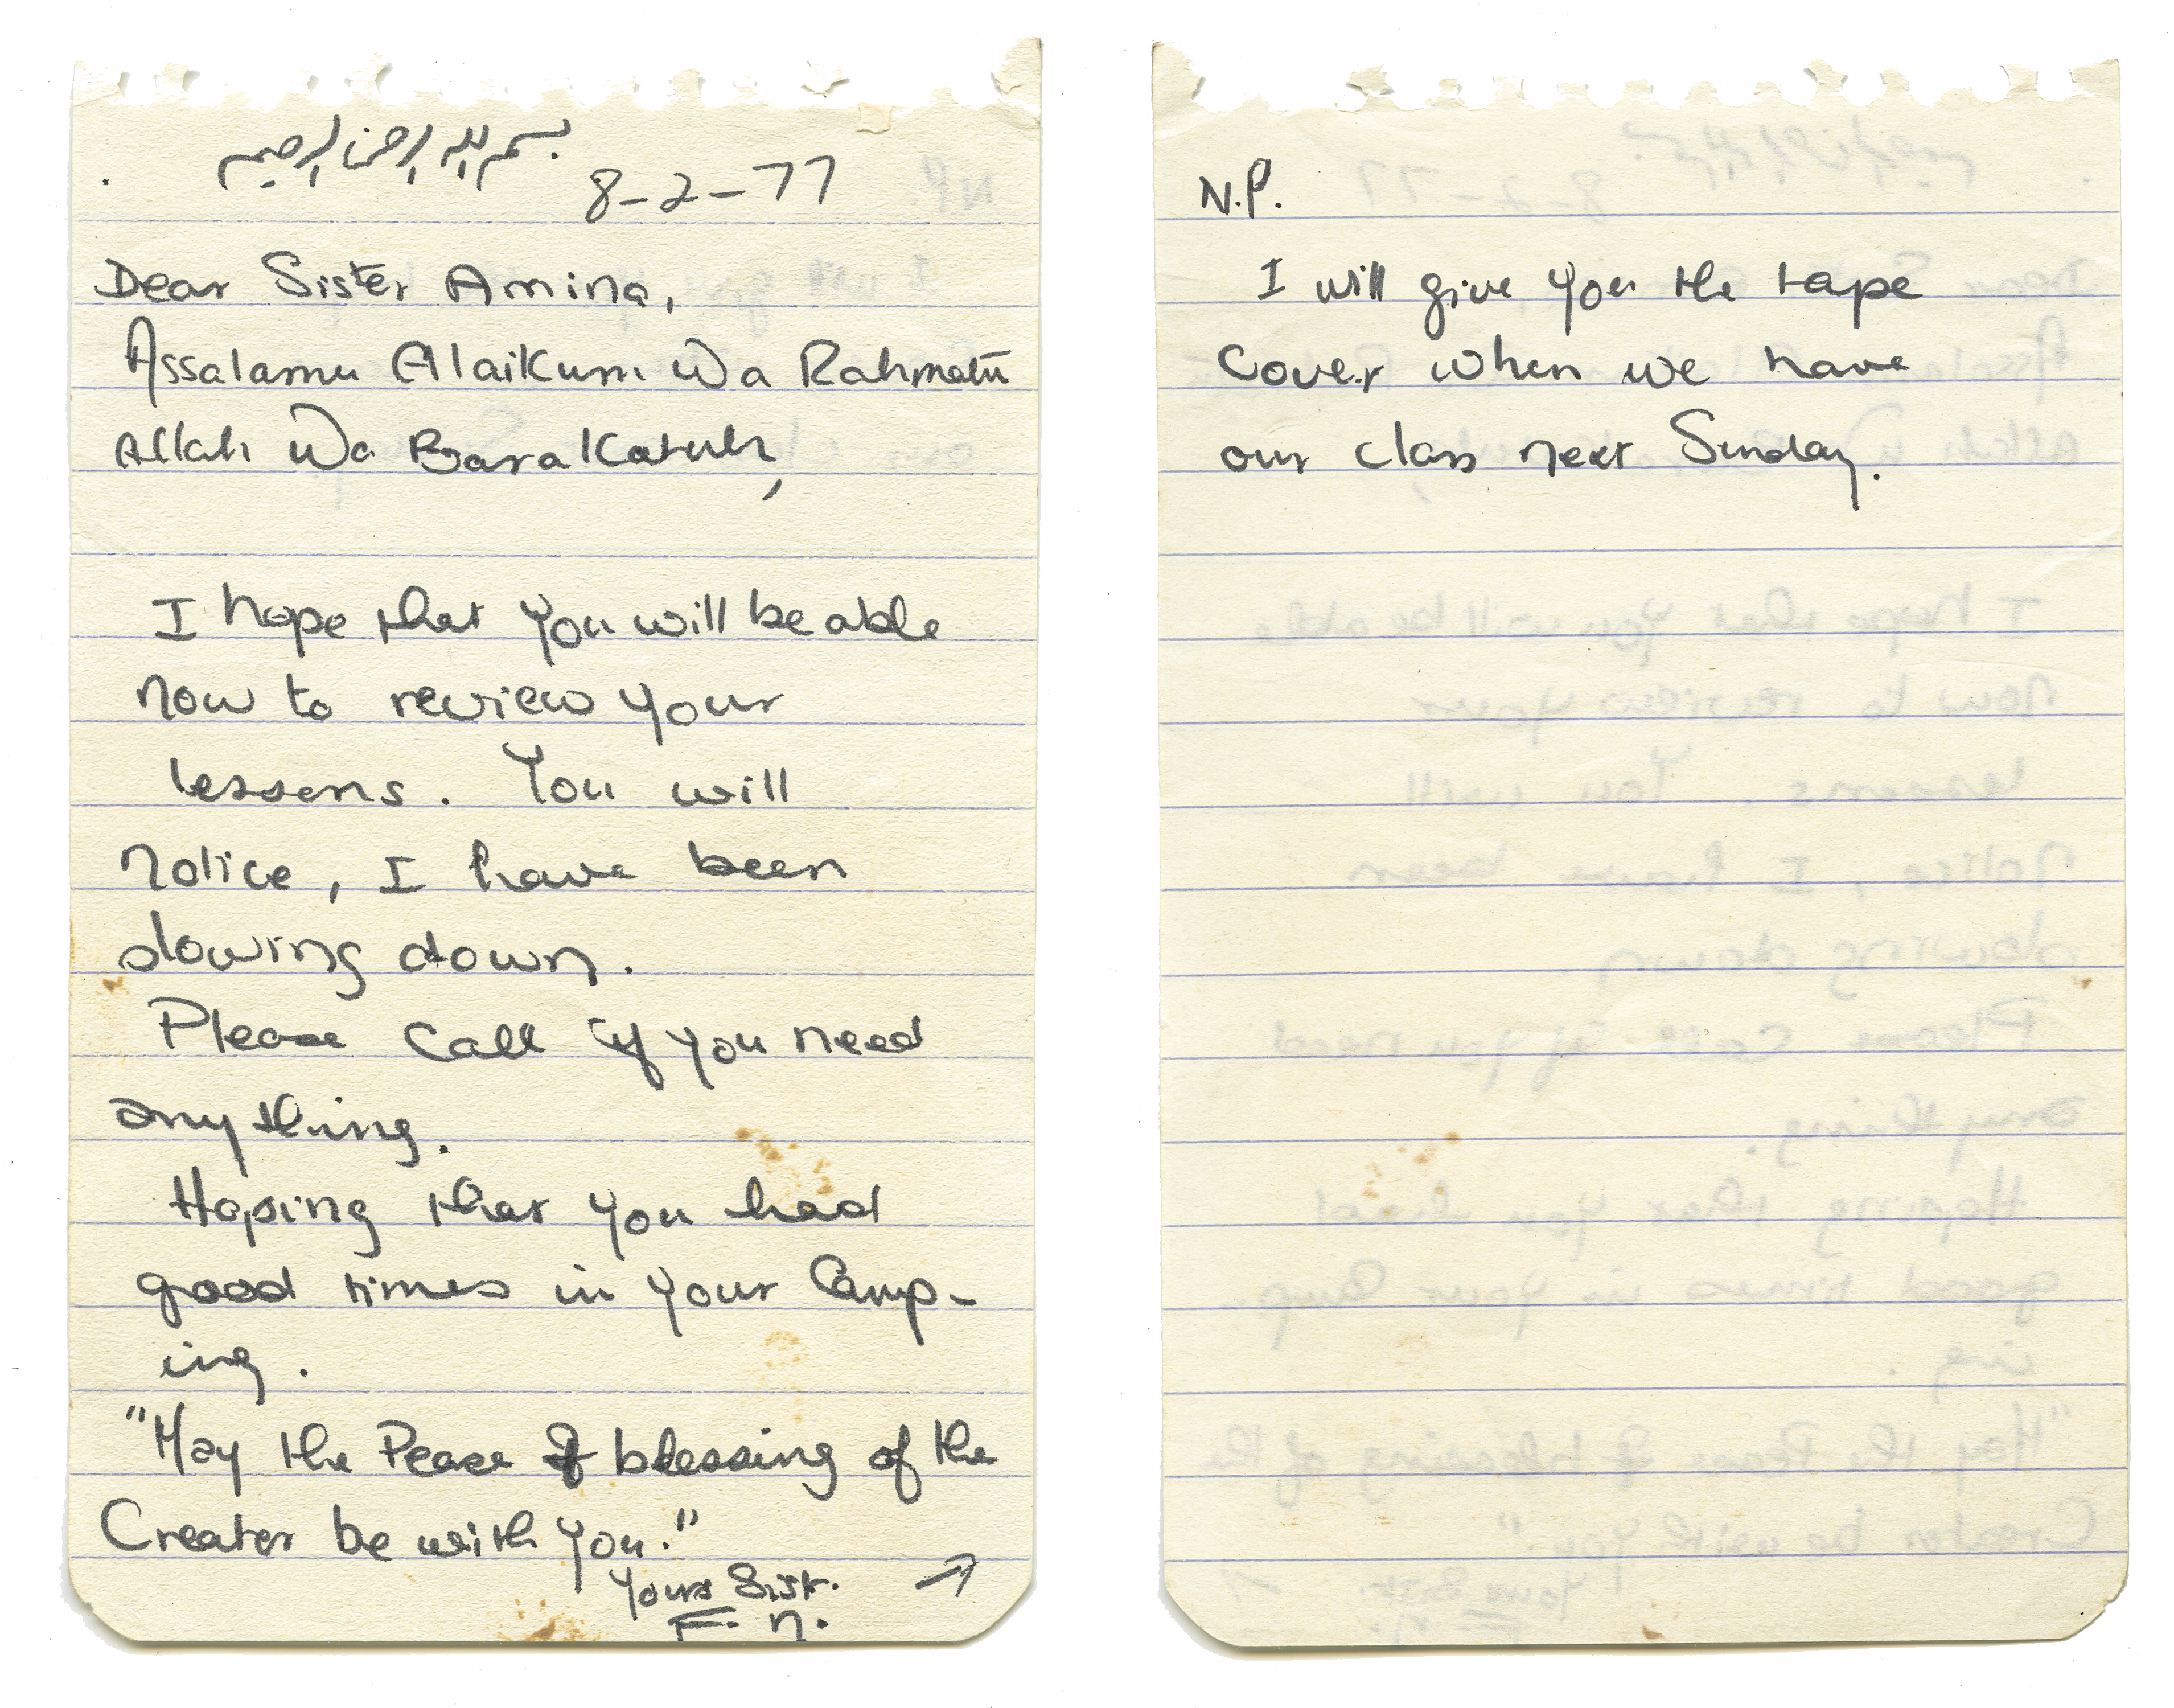 بسم الله الرحمن الرحيم
8-2-77
Dear Sister Amina,
Assalamu Alaikum Wa Rahmatu
Allah Wa Barakatuh,
I hope that you will be able
now to review your
lessons. You will
notice, I have been
slowing down.
Please Call if you need
anything.
Hoping that you had
good times in your Camp-
ing.
"May the Peace & blessing of the
Creator be with you."
Yours Sistr.
F. n.
→
N.P.
I will give you the tape
Cover when we have
our class next Sunday.